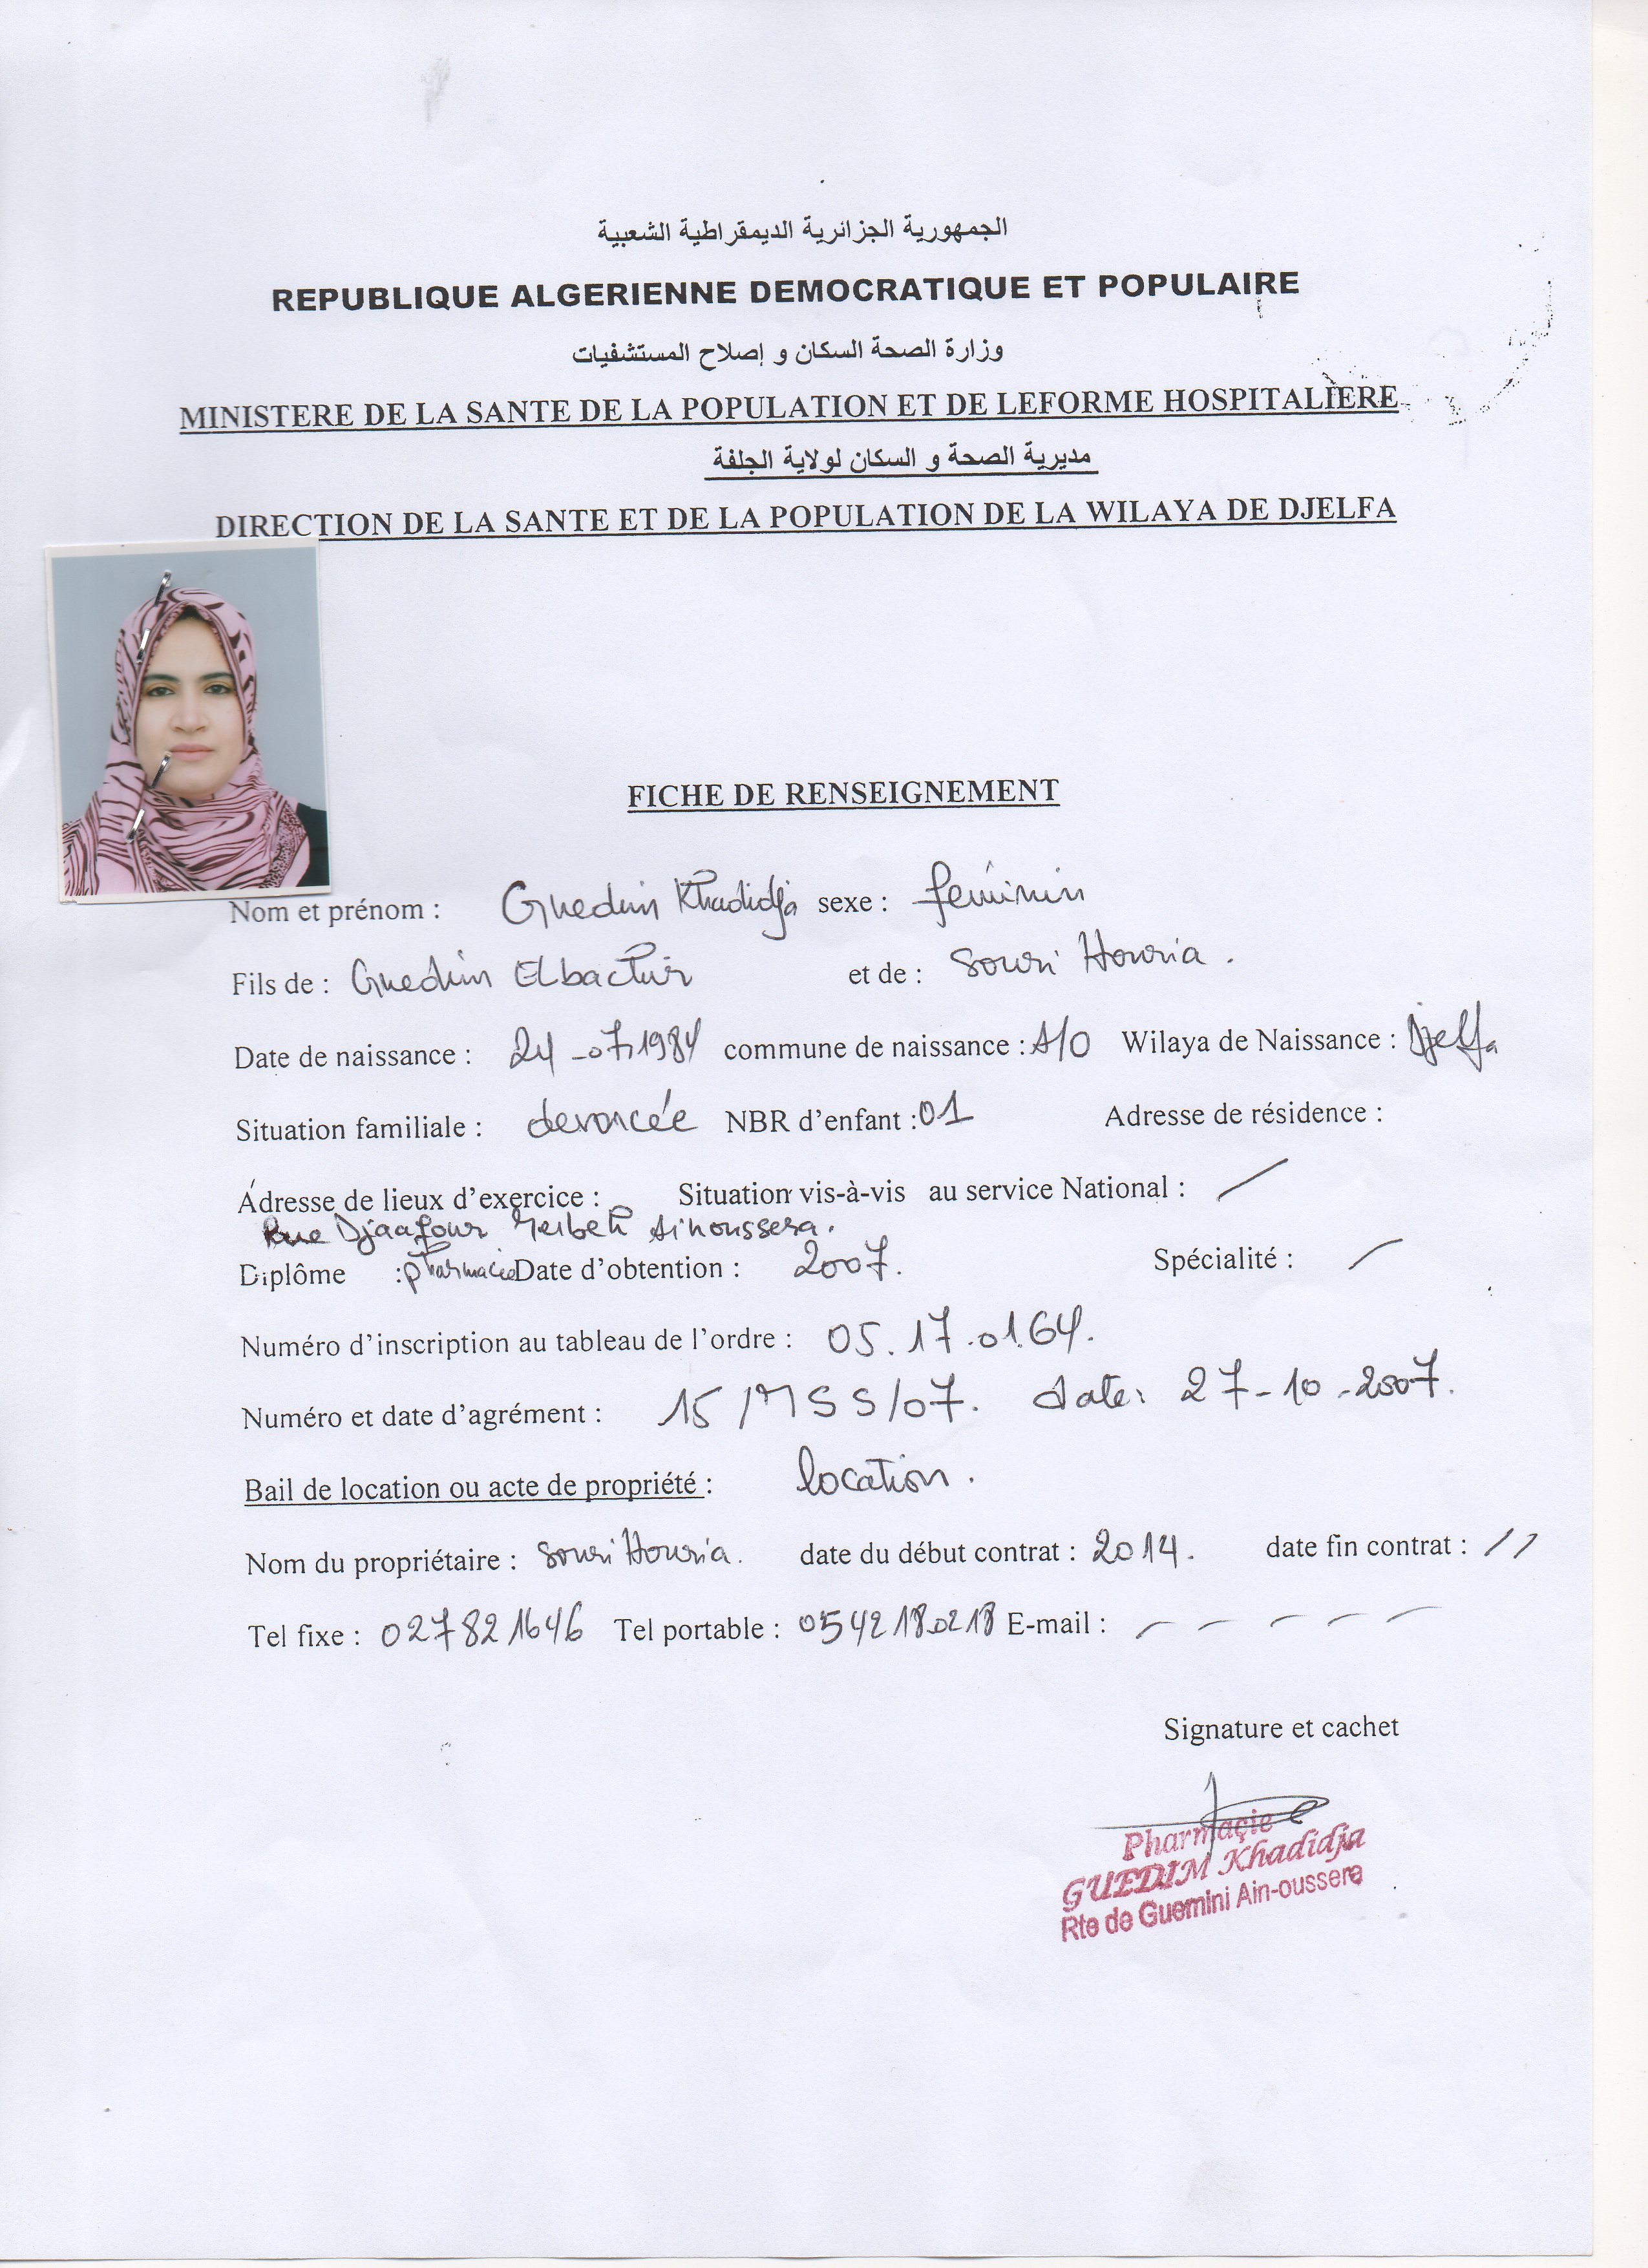 الجمهورية الجزائرية الديمقراطية الشعبية
REPUBLIQUE ALGERIENNE DEMOCRATIQUE ET POPULAIRE
وزارة الصحة السكان و إصلاح المستشفيات
MINISTERE DE LA SANTE DE LA POPULATION ET DE LEFORME HOSPITALIERE
مديرية الصحة و السكان لولاية الجلفة
DIRECTION DE LA SANTE ET DE LA POPULATION DE LA WILAYA DE DJELFA
FICHE DE RENSEIGNEMENT
Nom et prénom : Guedim Khadidja sexe : feminin
Fils de : Guedim Elbachir et de : Souri Houria .
Date de naissance : 24 -07-1984 commune de naissance : A/O Wilaya de Naissance : Djelfa
Situation familiale : devorcée NBR d'enfant :01 Adresse de résidence :
Adresse de lieux d'exercice : Situation vis-à-vis au service National : /
Rue Djaafour Ainoussera.
Diplôme :pharmacie Date d'obtention : 2007. Spécialité : /
Numéro d'inscription au tableau de l'ordre : 05.17.0164.
Numéro et date d'agrément : 15/MSS/07. date: 27-10-2007.
Bail de location ou acte de propriété : location .
Nom du propriétaire : Souri Houria. date du début contrat : 2014. date fin contrat : //
Tel fixe : 027821646 Tel portable : 0542180218 E-mail : - - - - -
Signature et cachet
Pharmaçie
GUEDIM Khadidja
Rte de Guemini Ain-oussera